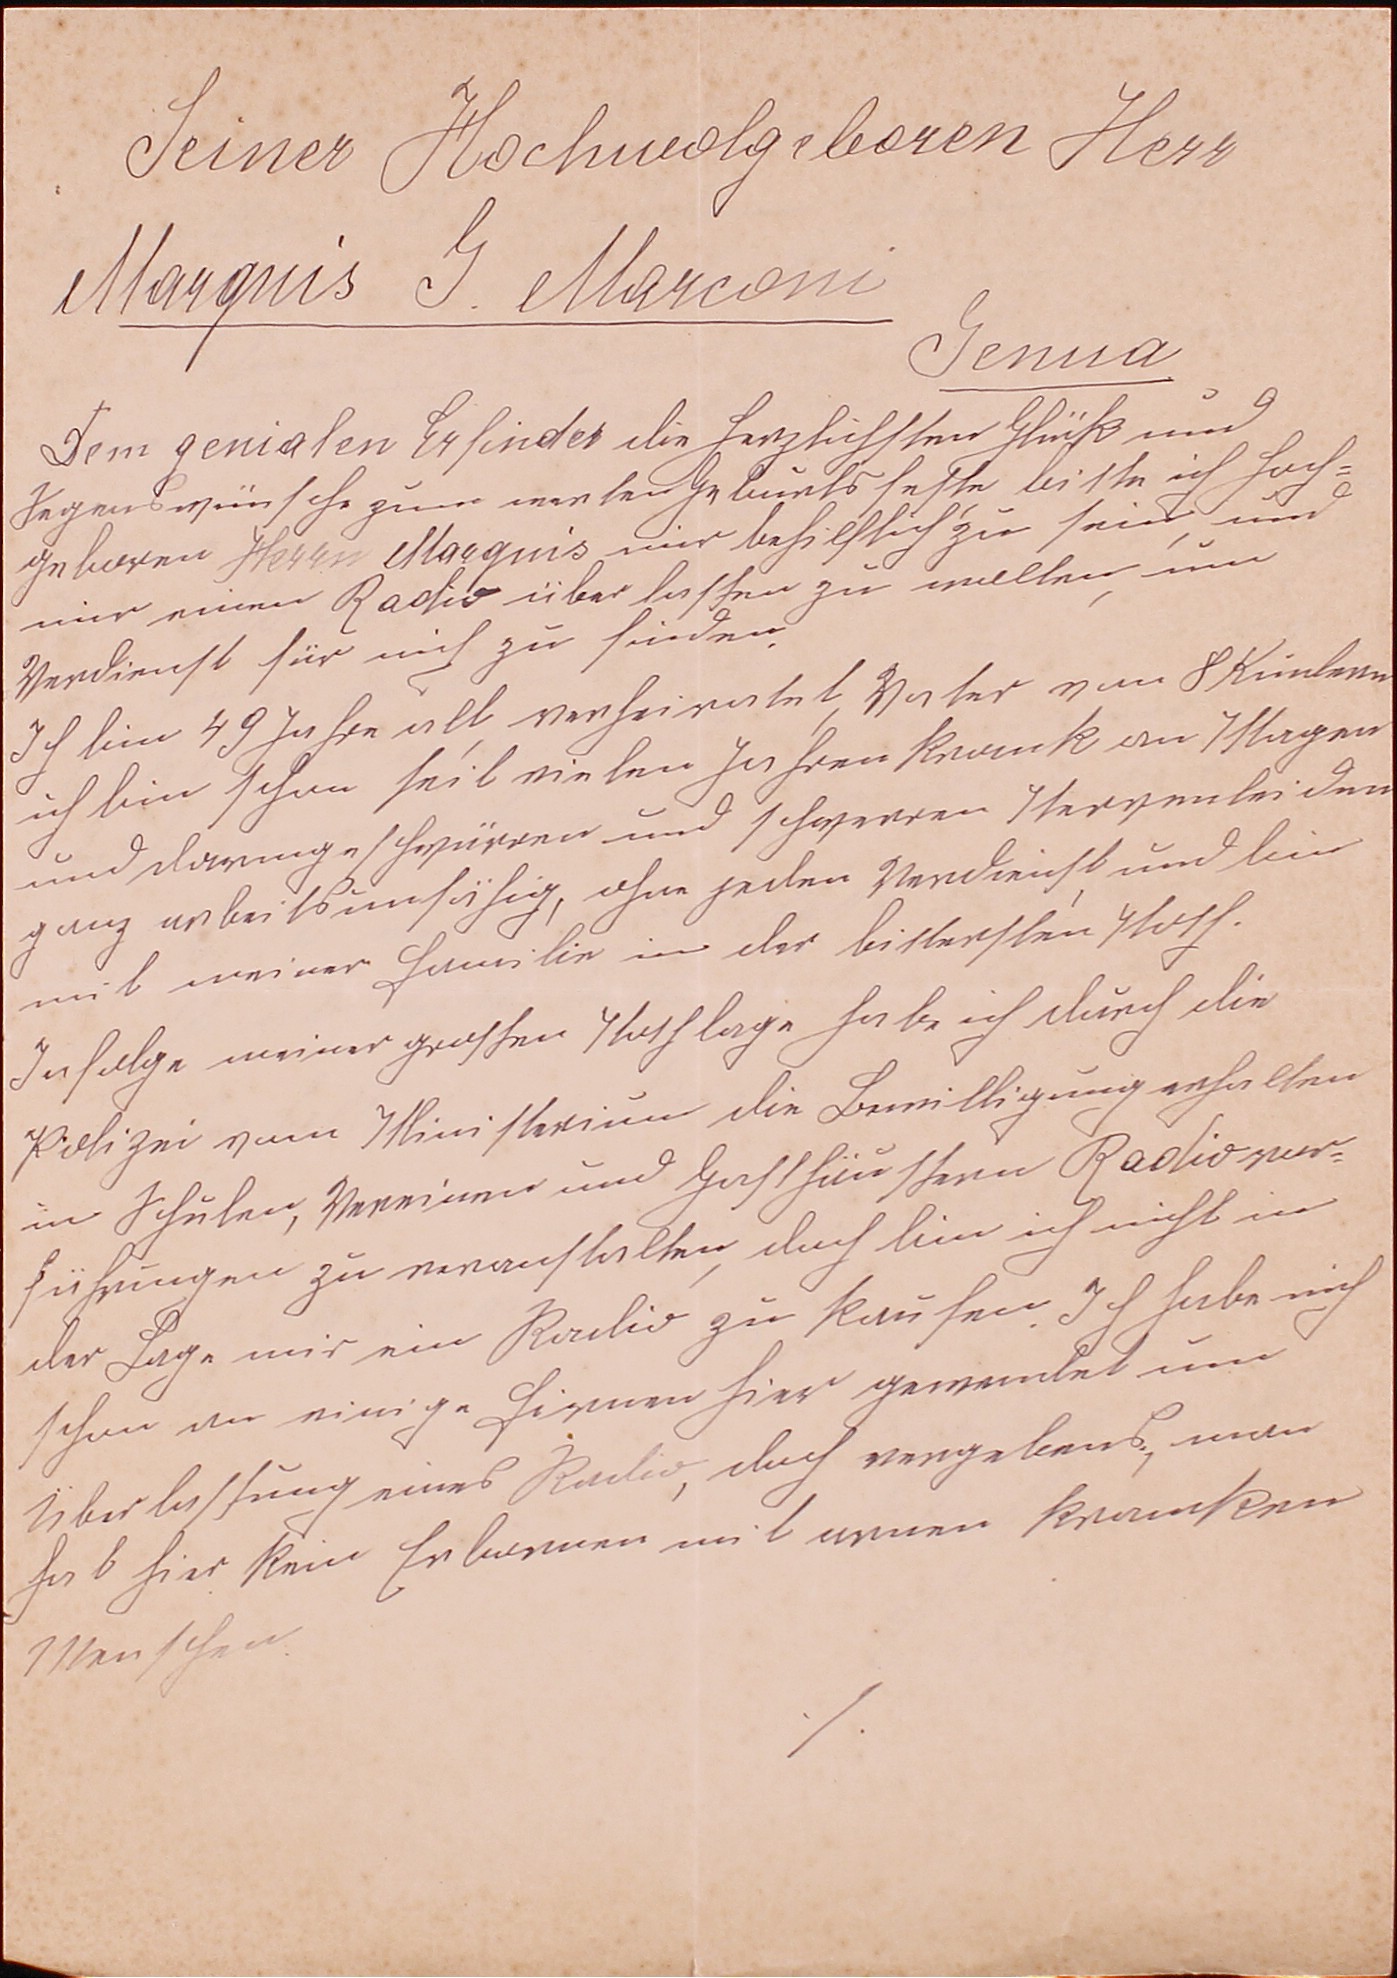 Seiner Hochwolgeboren Herr
Marquis G. Marconi
Genua
Dem genialen Erfinder die herzlichsten Glük und
Segenswünsche zum werten Geburtsfeste, bitte ich hoch=
geboren Herrn Marquis mir behilflich zu sein, und
mir einen Radio überlassen zu wollen, um
Verdienst für mich zu finden.
Ich bin 49 Jahre alt, verheiratet, Vater von 8 Kindern
ich bin schon seit vielen Jahren krank an Magen
und darmgeschwürren und schwerren Nervenleiden
ganz arbeitsunfähig, ohne jeden Verdienst, und bin
mit meiner Familie in der bittersten Noth.
Infolge meiner großen Nothlage habe ich durch die
Polizei vom Ministerium die Bewilligung erhalten
in Schulen, Vereinen und Gasthäussern Radiovor=
führungen zu veranstalten, doch bin ich nicht in
der Lage mir ein Radio zu kaufen. Ich habe mich
schon an einige Firmen hier gewendet um
Überlassung eines Radio, doch vergebens, man
hat hier kein Erbarmen mit armen kranken
Menschen.
./.